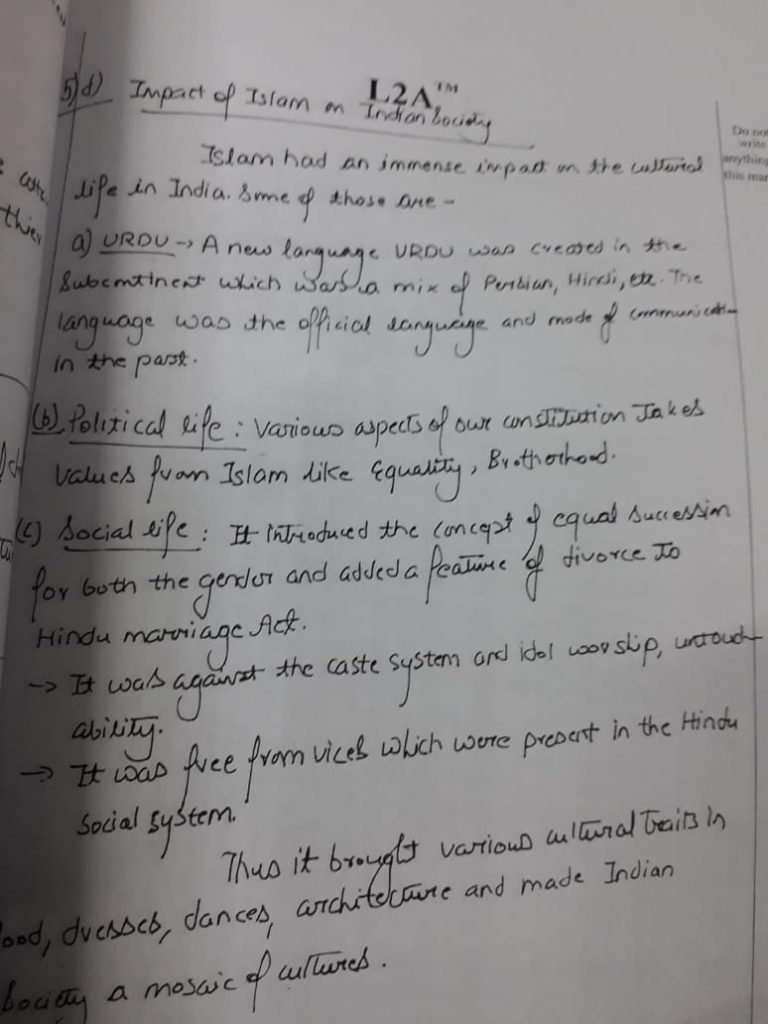 L2A™
5)d) Impact of Islam on Indian Society
Do not
write
anything
this mar
Islam had an immense impact on the cultural
life in India. Some of those are -
a) URDU → A new language URDU was created in the
Subcontinent which was a mix of Persian, Hindi, etc. The
language was the official language and mode of communication
in the past.
(b) Political life : Various aspects of our constitution Takes
values from Islam like Equality, Brotherhood.
(c) Social life : It introduced the concept of equal succession
for both the gender and added a feature of divorce To
Hindu marriage Act.
→ It was against the caste system and idol worship, untouch-
ability.
→ It was free from vices which were present in the Hindu
Social system.
Thus it brought various cultural traits in
ood, dresses, dances, architecture and made Indian
Society a mosaic of cultures.